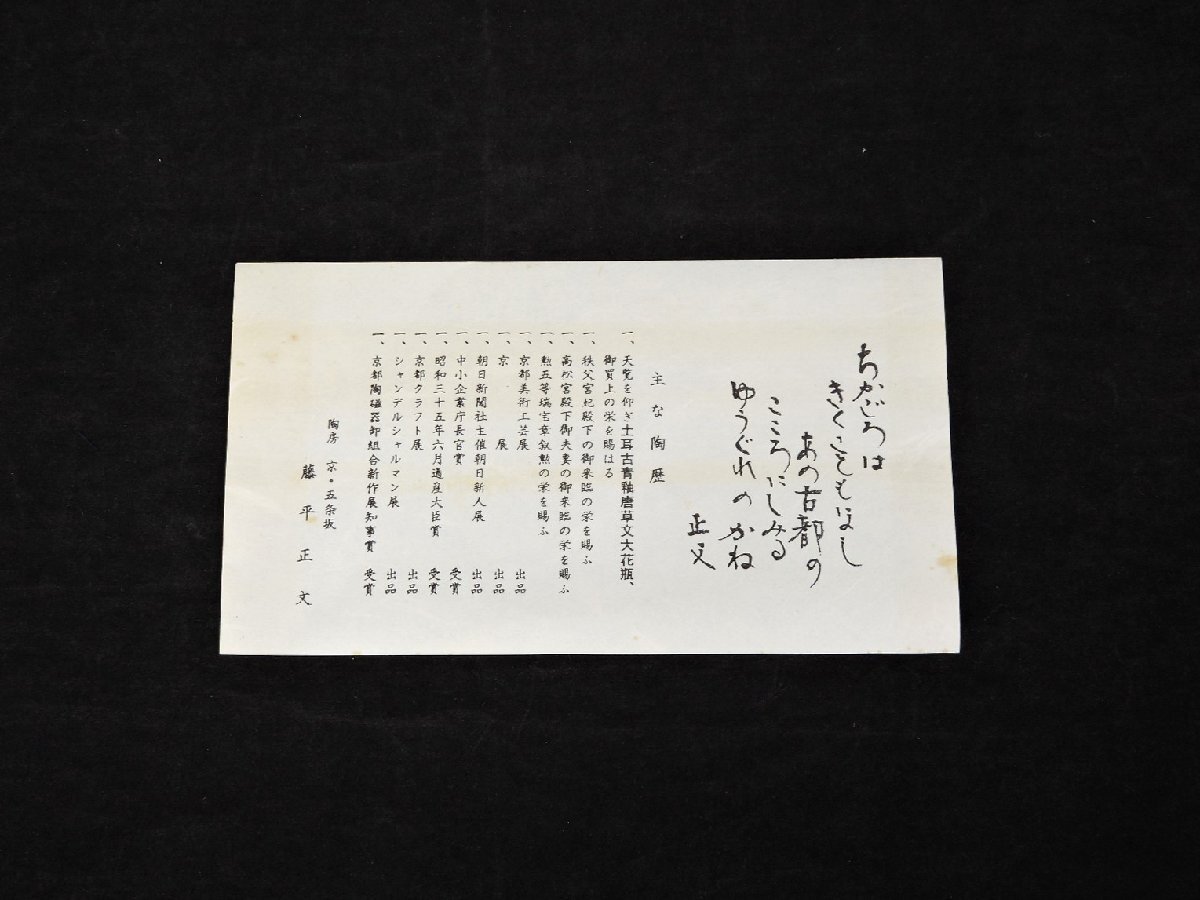 ちかごろは
きくこともなし
あの古都の
こころにしみる
ゆうぐれのかね
正文
主な陶歴
一、天覧を仰ぎ土耳古青釉唐草文大花瓶、
御買上の栄を賜はる
一、秩父宮妃殿下の御来臨の栄を賜ふ
一、高松宮殿下御夫妻の御来臨の栄を賜ふ
一、勲五等瑞宝章叙勲の栄を賜ふ
一、京都美術工芸展 出品
一、京展 出品
一、朝日新聞社主催朝日新人展 出品
一、中小企業庁長官賞 受賞
一、昭和三十五年六月通産大臣賞 受賞
一、京都クラフト展 出品
一、シャンデルシャルマン展 出品
一、京都陶磁器卸組合新作展知事賞 受賞
陶房 京・五条坂
藤平正文